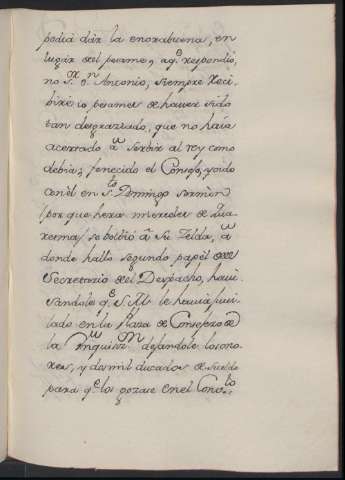 podia dár la enorabuena, en
lugár del pesame, aq.ͤ respondio,
no S.ʳ D.ⁿ Antonio, siempre Reci-
biré io pesames de haver sido
tan desgraziado, que no haia
acertado á serbir al rey como
debia; fenecido el Consejo, y oido
con èl en S.ᵗᵒ Domingo sermòn
(por que hera miercoles de Qua-
resma) se bolbió á su Zelda, á
donde hallo segundo papél del
Secretario del Despacho, havi-
sandole q.ͤ S. M. le havia jubi-
lado en la Plaza de Consejero de
la Inquisiz.ⁿ dejandole los ono-
res, y dos mil ducados de sueldo
para q.ͤ los gozase en el Cons.ᵗᵒ